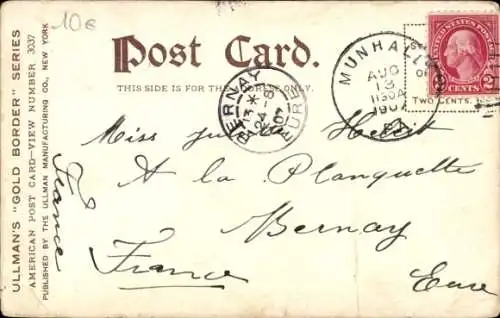 10€
Post Card.
THIS SIDE IS FOR THE ADDRESS ONLY.
ULLMAN'S "GOLD BORDER" SERIES
AMERICAN POST CARD-VIEW NUMBER 3037
PUBLISHED BY THE ULLMAN MANUFACTURING CO., NEW YORK
France
BERNAY
24
EURE
MUNHALL
AUG
13
1130A
1907
TWO CENTS
UNITED STATES POSTAGE
2 CENTS 2
Miss
A la Planquette
Bernay
France Eure